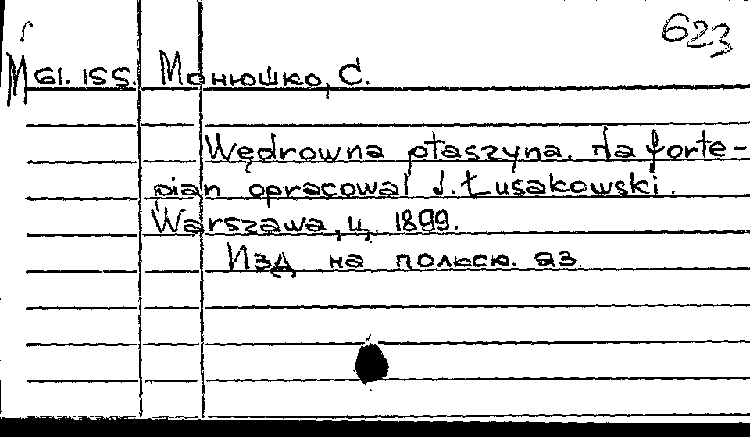 623
М 61.155. Монюшко, С.
Wędrowna ptaszyna. Na forte-
pian opracowal J. Łusakowski.
Warszawa, ц. 1899.
Изд на польск. яз